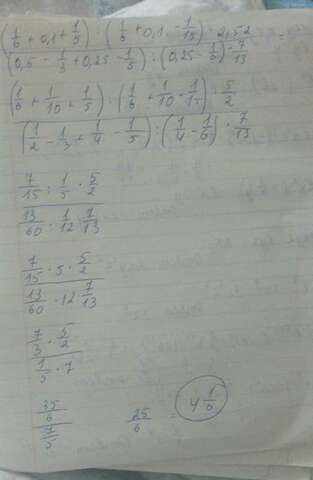 (1/6 + 0,1 + 1/5) : (1/6 + 0,1 - 1/15) · 2,52 =
(0,5 - 1/3 + 0,25 - 1/5) : (0,25 - 1/6) · 7/13
(1/6 + 1/10 + 1/5) : (1/6 + 1/10 - 1/1) · 5/2
(1/2 - 1/3 + 1/4 - 1/5) : (1/4 - 1/6) · 7/13
7/15 : 1/5 · 5/2
13/60 : 1/12 7/13
7/15 · 5 · 5/2
13/60 · 12 7/13
7/3 · 5/2
1/5 · 7
35/6
7/5
25/6 = 4 1/6